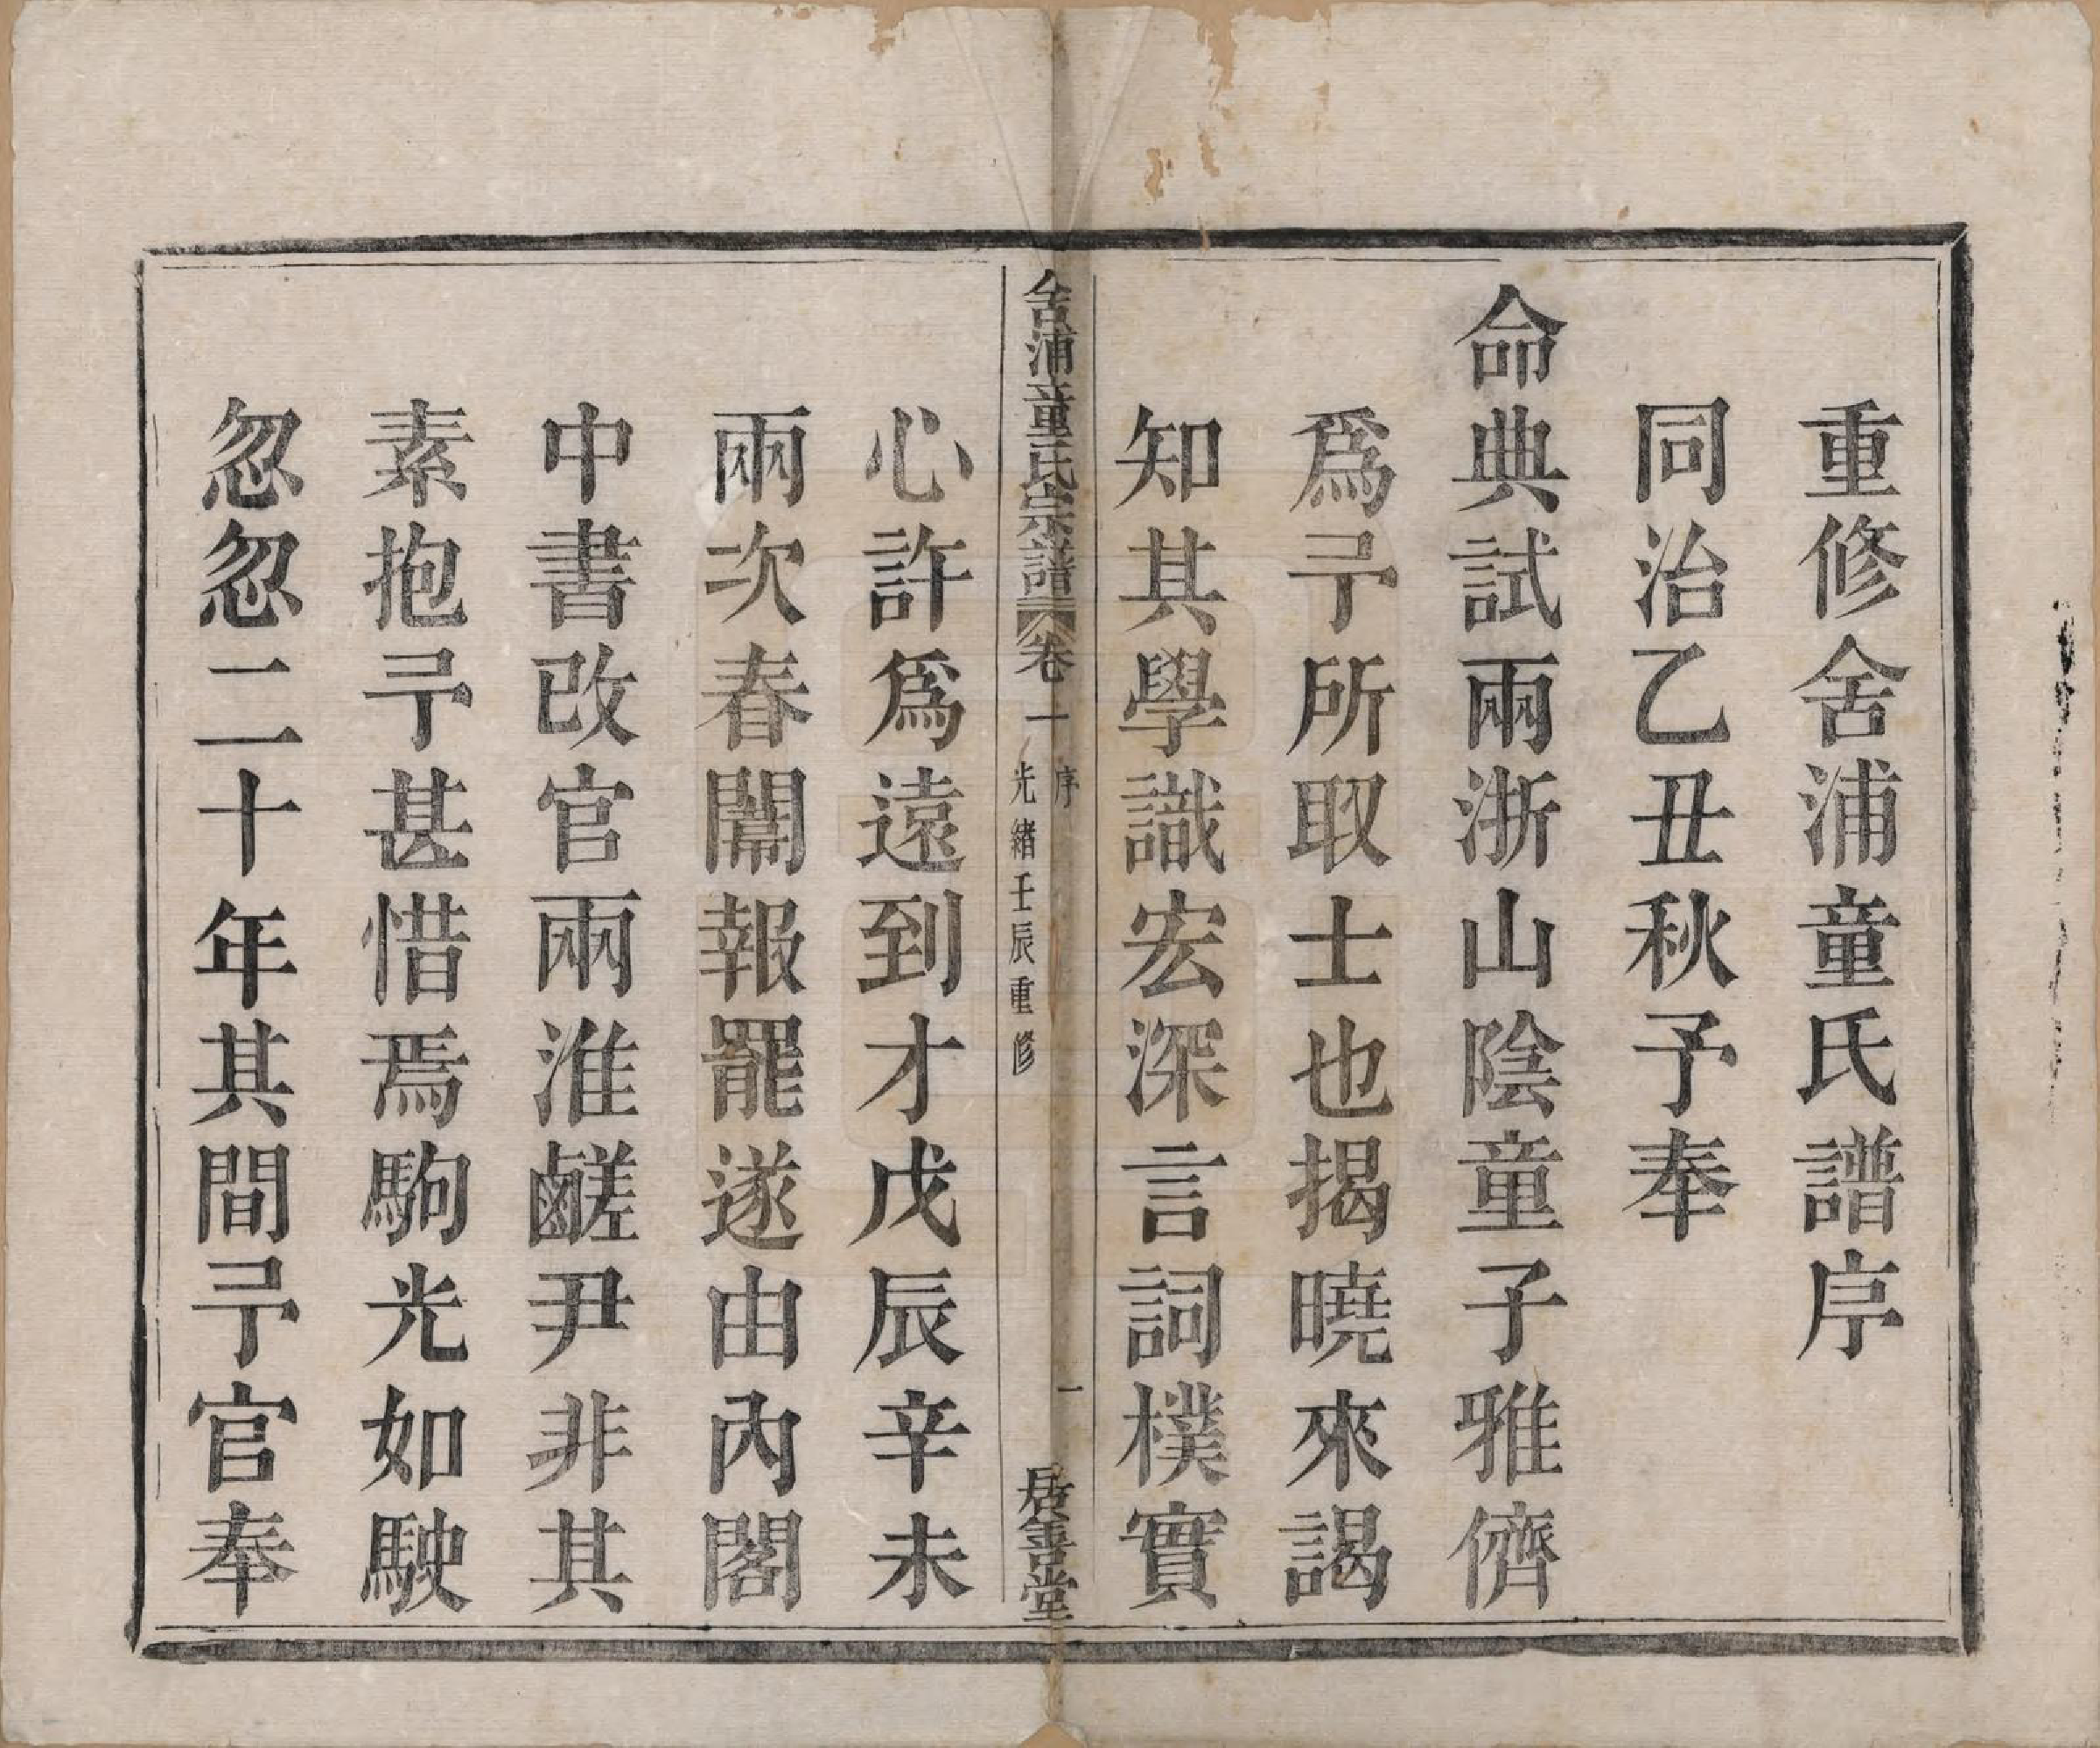 重修舍浦童氏譜序
同治乙丑秋予奉
命典試兩浙山陰童子雅儕
爲予所取士也揭曉來謁
知其學識宏深言詞樸實
舍浦童氏宗譜 卷一 序 光緒壬辰重修 一 居善堂
心許爲遠到才戊辰辛未
兩次春闈報罷遂由內閣
中書改官兩淮鹺尹非其
素抱予甚惜焉駒光如駛
忽忽二十年其間予官奉